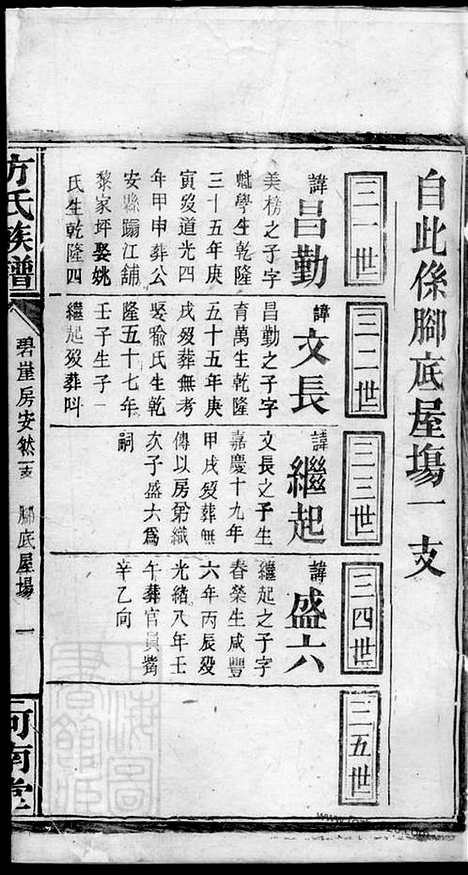 自此係腳底屋塲一支
三一世
諱昌勤
美榜之子字
魁學生乾隆
三十五年庚
寅歿道光四
年甲申葬公
安縣蹦江舖
黎家坪娶姚
氏生乾隆四
三二世
諱文長
昌勤之子字
育萬生乾隆
五十五年庚
戌歿葬無考
娶喻氏生乾
隆五十七年
壬子生子一
繼起歿葬呌
三三世
諱繼起
文長之子生
嘉慶十九年
甲戌歿葬無
傳以房弟織
次子盛六為
嗣
三四世
諱盛六
繼起之子字
春榮生咸豐
六年丙辰歿
光緒八年壬
午葬官員觜
辛乙向
三五世
方氏族譜
碧崖房安然支
腳底屋塲
一
河南堂